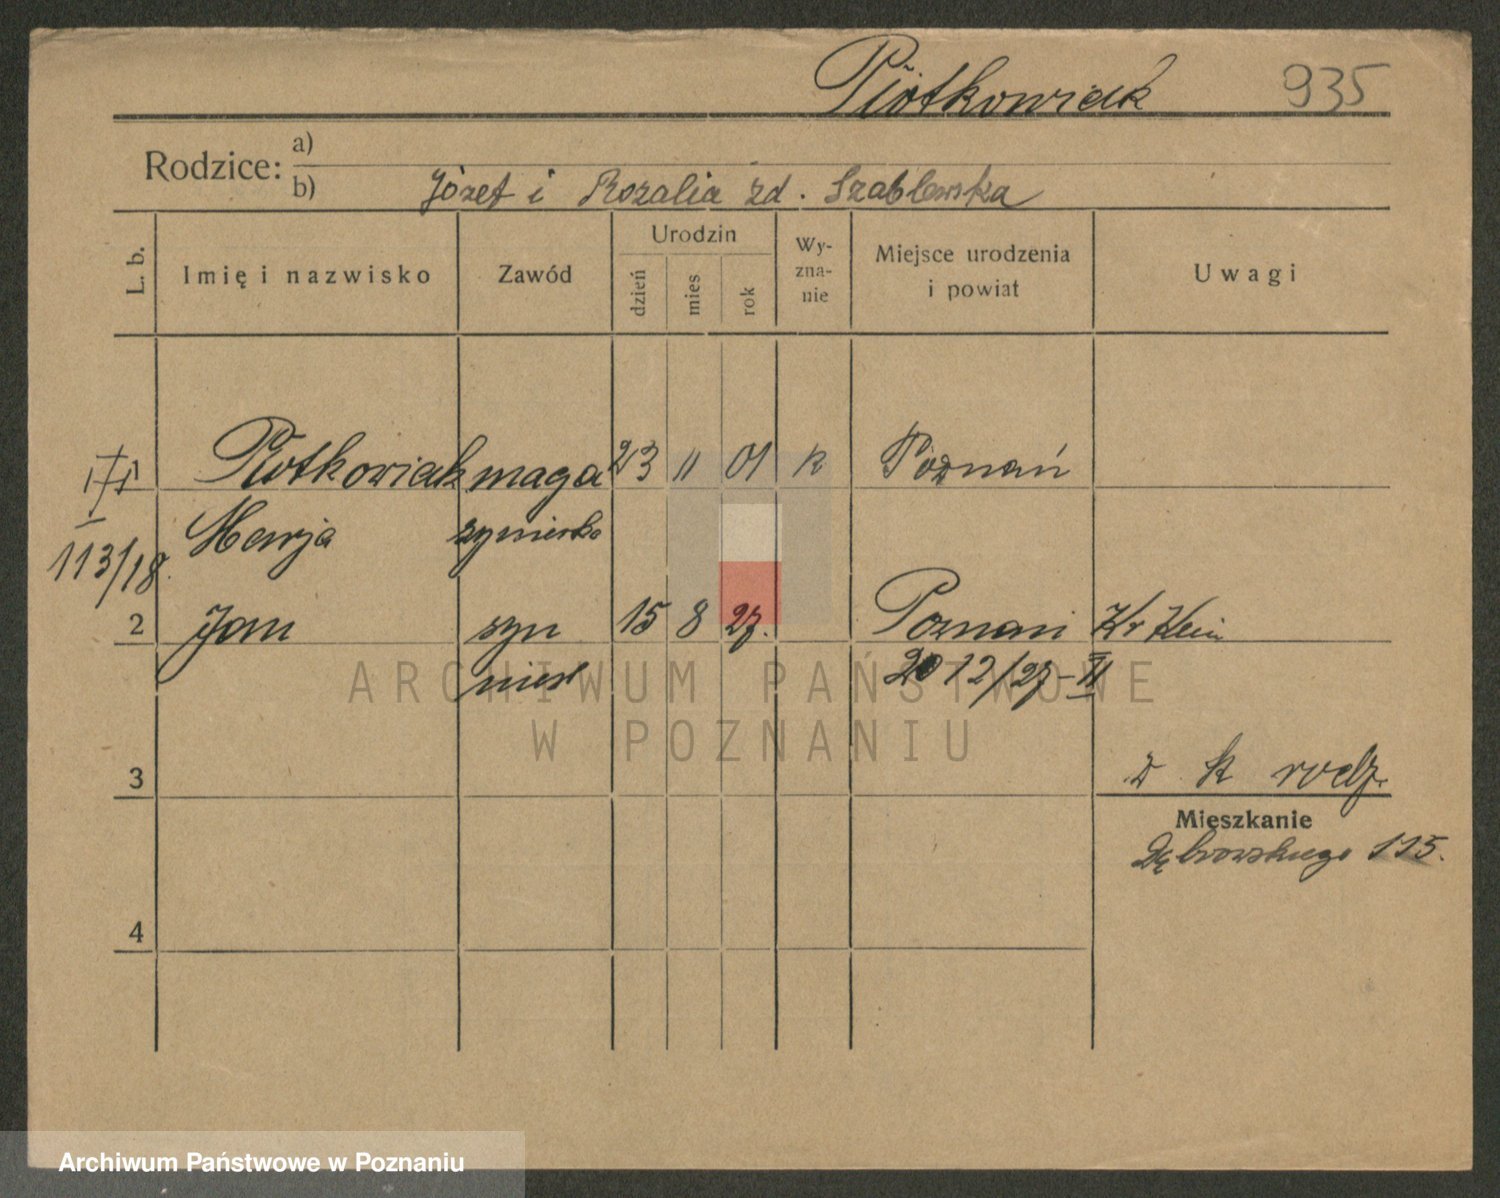 Piotkowiak 935
Rodzice: a)
b) Józef i Rozalia zd. Szablewska
L. b. Imię i nazwisko Zawód Urodzin dzień mies rok Wy-zna-nie Miejsce urodzenia i powiat Uwagi
1 Piotkowiak maga 23 11 01 k Poznań
Marja zynierka
113/18.
2 Jan syn 15 8 27. Poznań
niesl 20 12/27-VI
3 z k rodz.
Mieszkanie
Dąbrowskiego 115.
4
ARCHIWUM PAŃSTWOWE
W POZNANIU
Archiwum Państwowe w Poznaniu